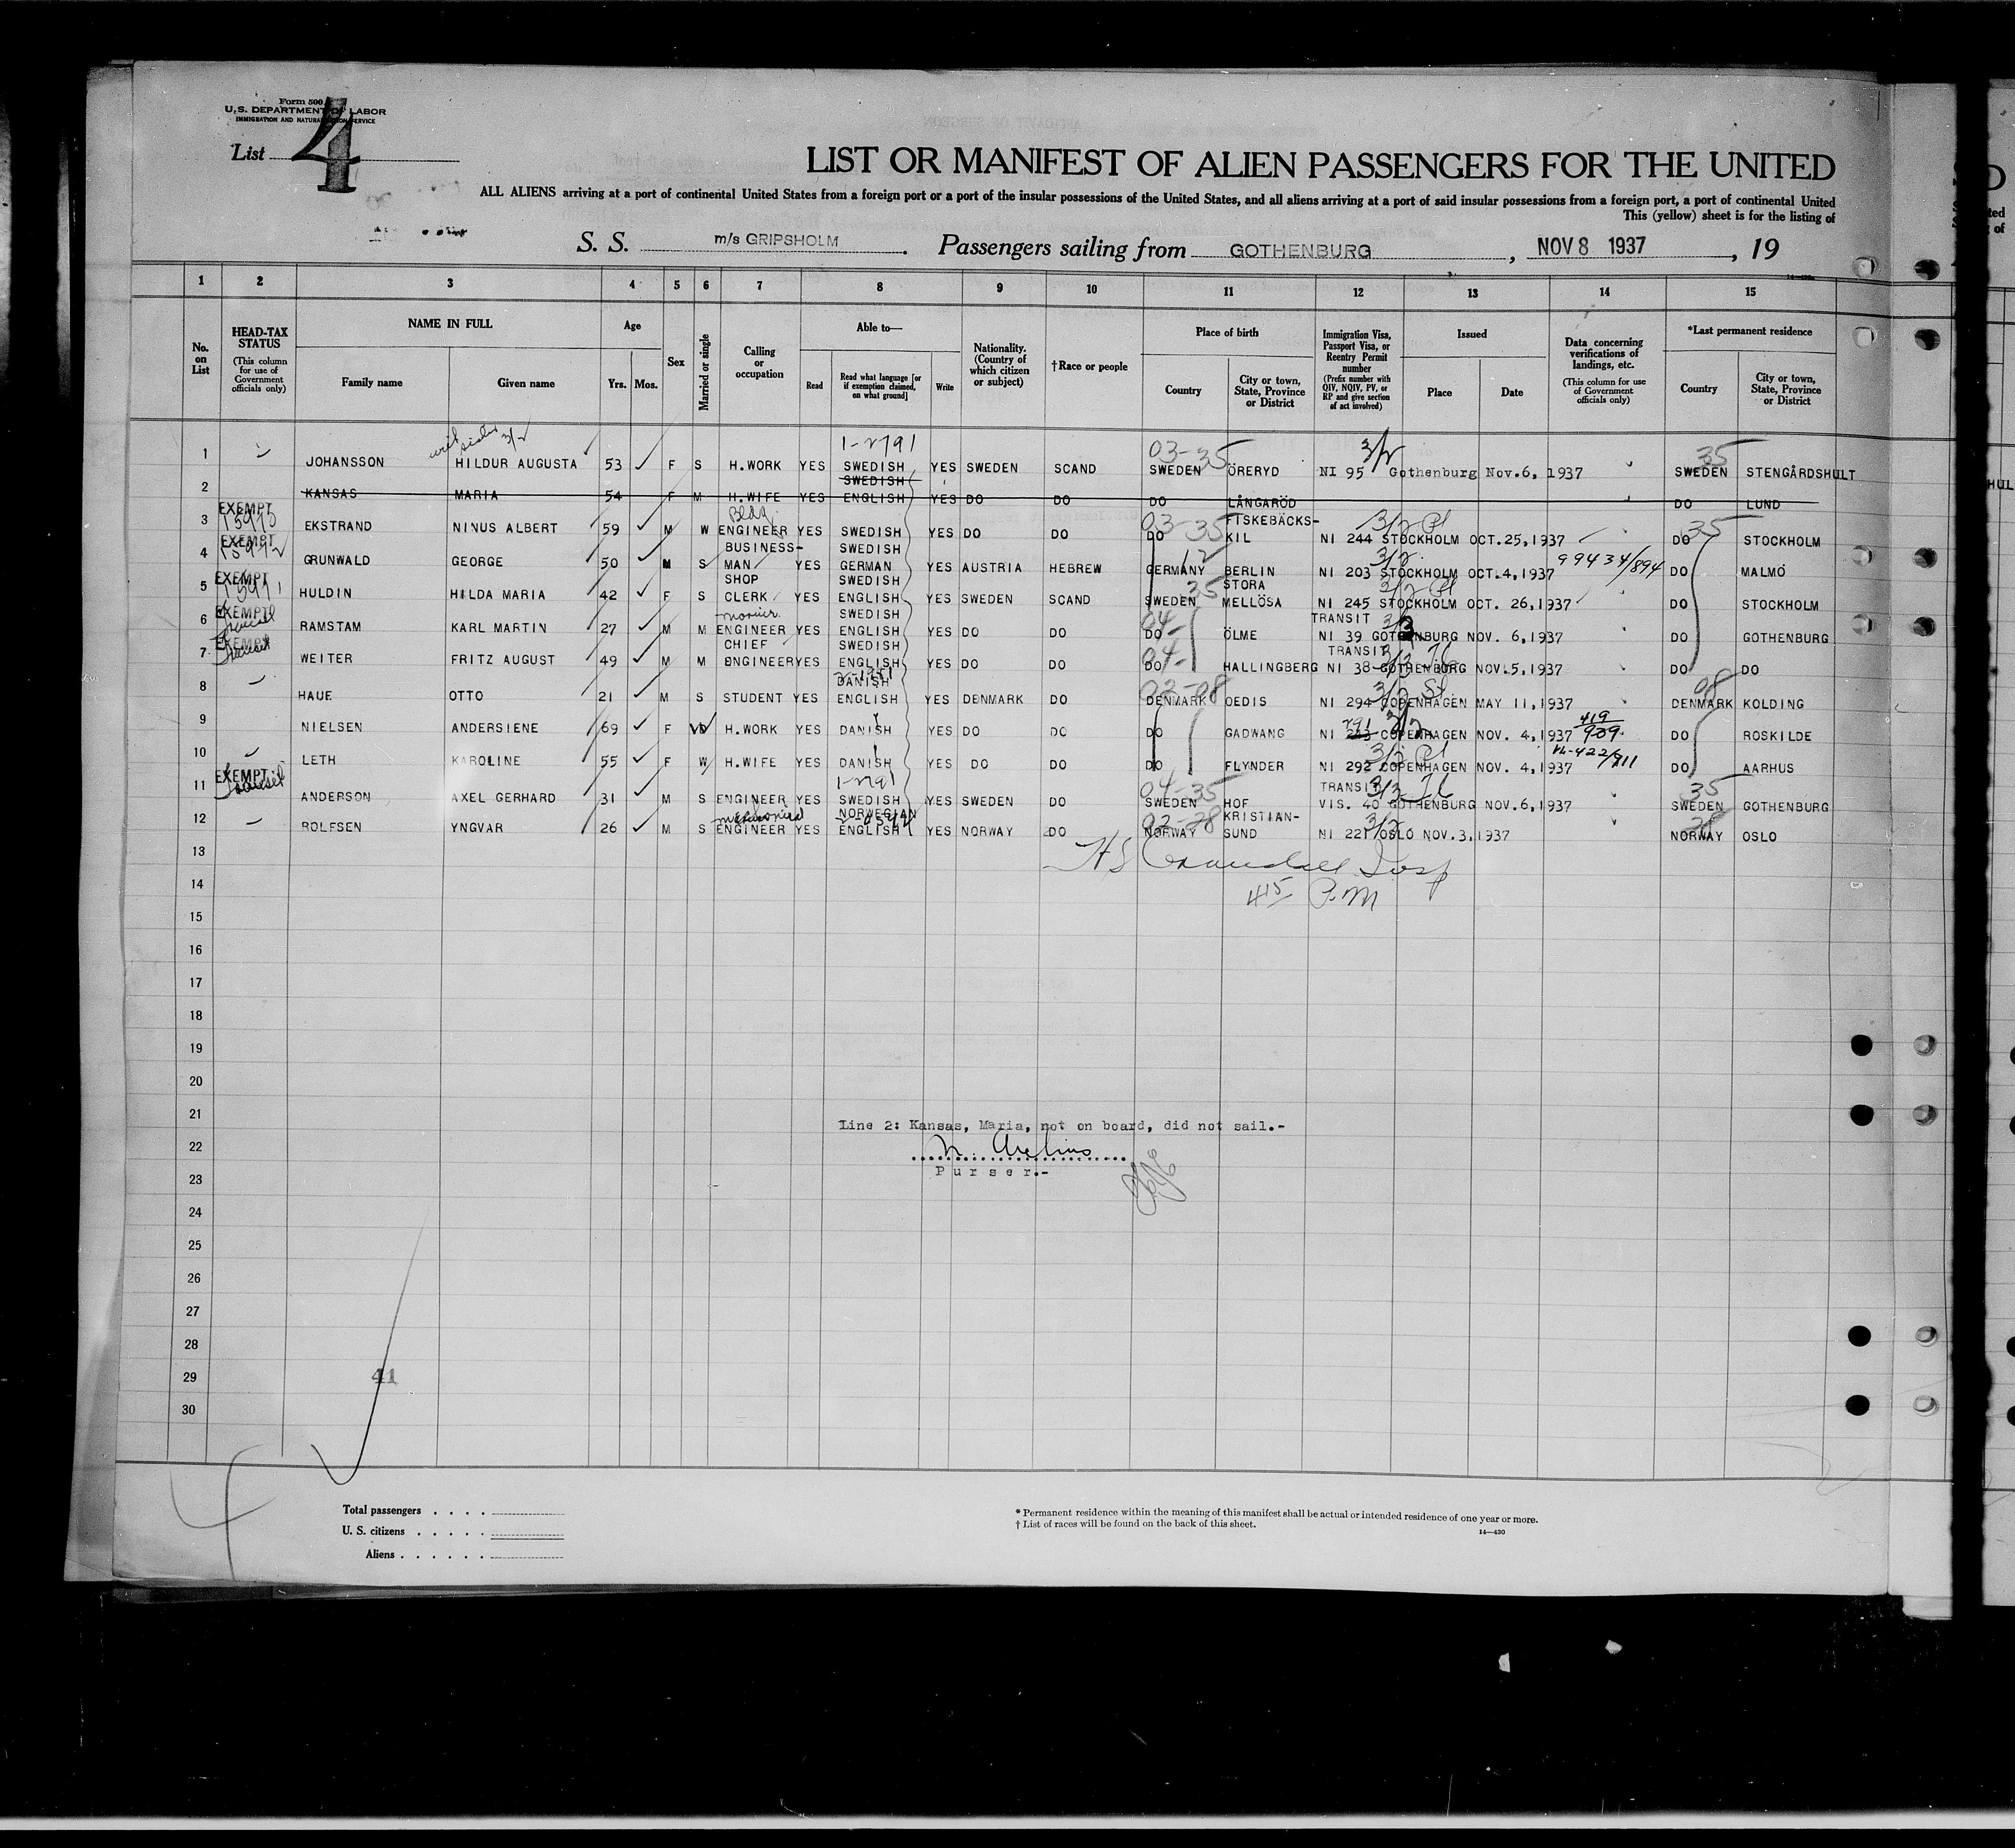 Form 500
U.S. DEPARTMENT OF LABOR
IMMIGRATION AND NATURALIZATION SERVICE
List 4
LIST OR MANIFEST OF ALIEN PASSENGERS FOR THE UNITED
ALL ALIENS arriving at a port of continental United States from a foreign port or a port of the insular possessions of the United States, and all aliens arriving at a port of said insular possessions from a foreign port, a port of continental United
This (yellow) sheet is for the listing of
S. S. m/s GRIPSHOLM. Passengers sailing from GOTHENBURG, NOV 8 1937, 19
1 2 3 4 5 6 7 8 9 10 11 12 13 14 15
No. on List
HEAD-TAX STATUS (This column for use of Government officials only)
NAME IN FULL
Family name
Given name
Age
Yrs. Mos.
Sex
Married or single
Calling or occupation
Able to—
Read
Read what language [or if exemption claimed, on what ground]
Write
Nationality. (Country of which citizen or subject)
†Race or people
Place of birth
Country
City or town, State, Province or District
Immigration Visa, Passport Visa, or Reentry Permit number (Prefix number with QIV, NQIV, PV, or RP and give section of act involved)
Issued
Place
Date
Data concerning verifications of landings, etc. (This column for use of Government officials only)
*Last permanent residence
Country
City or town, State, Province or District
3/2 1-2791 03-35 3/2 35
1 JOHANSSON HILDUR AUGUSTA 53 F S H.WORK YES SWEDISH YES SWEDEN SCAND SWEDEN ÖRERYD NI 95 Gothenburg Nov.6, 1937 SWEDEN STENGÅRDSHULT
2 KANSAS MARIA 54 F M H.WIFE YES SWEDISH ENGLISH YES DO DO DO LÅNGARÖD DO LUND
3 EXEMPT 15970 EKSTRAND NINUS ALBERT 59 M W Bldg. ENGINEER YES SWEDISH YES DO DO 03-35 DO FISKEBÄCKS-KIL NI 244 STOCKHOLM OCT.25,1937 35 DO STOCKHOLM
4 EXEMPT 15972 GRUNWALD GEORGE 50 M S BUSINESS-MAN YES SWEDISH GERMAN YES AUSTRIA HEBREW 12 GERMANY BERLIN NI 203 STOCKHOLM OCT.4,1937 99434/894 DO MALMÖ
5 EXEMPT 15971 HULDIN HILDA MARIA 42 F S SHOP CLERK YES SWEDISH ENGLISH YES SWEDEN SCAND 35 SWEDEN STORA MELLÖSA NI 245 STOCKHOLM OCT. 26,1937 DO STOCKHOLM
6 EXEMPT RAMSTAM KARL MARTIN 27 M M ENGINEER YES SWEDISH ENGLISH YES DO DO 04- DO ÖLME TRANSIT NI 39 GOTHENBURG NOV. 6,1937 DO GOTHENBURG
7 EXEMPT WEITER FRITZ AUGUST 49 M M CHIEF ENGINEER YES SWEDISH ENGLISH YES DO DO 04- DO HALLINGBERG TRANSIT NI 38 GOTHENBURG NOV.5,1937 DO DO
8 HAUE OTTO 21 M S STUDENT YES DANISH ENGLISH YES DENMARK DO 02-08 DENMARK OEDIS NI 294 COPENHAGEN MAY 11,1937 08 DENMARK KOLDING
9 NIELSEN ANDERSIENE 69 F W H.WORK YES DANISH YES DO DO DO GADWANG NI 291 COPENHAGEN NOV. 4,1937 419/909 DO ROSKILDE
10 LETH KAROLINE 55 F W H.WIFE YES DANISH YES DO DO DO FLYNDER NI 292 COPENHAGEN NOV. 4,1937 422/911 DO AARHUS
11 EXEMPT ANDERSON AXEL GERHARD 31 M S ENGINEER YES 1-2791 SWEDISH YES SWEDEN DO 04-35 SWEDEN HOF TRANSIT VIS. 40 GOTHENBURG NOV.6,1937 35 SWEDEN GOTHENBURG
12 ROLFSEN YNGVAR 26 M S ENGINEER YES NORWEGIAN ENGLISH YES NORWAY DO 02-28 NORWAY KRISTIAN-SUND NI 221 OSLO NOV.3,1937 28 NORWAY OSLO
13
14 415 P.M
15
16
17
18
19
20
21
Line 2: Kansas, Maria, not on board, did not sail.-
22
Purser.-
23
24
25
26
27
28
29 41
30
Total passengers . . . .
U. S. citizens . . . . .
Aliens . . . . . .
* Permanent residence within the meaning of this manifest shall be actual or intended residence of one year or more.
† List of races will be found on the back of this sheet.
14—430